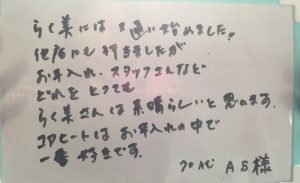 らく美には通い始めました!
他店にも行きましたが
お手入れ、スタッフさんなど
どれをとっても
らく美さんは素晴らしいと思います。
コアヒートはお手入れの中で
一番好きです。
A S 様